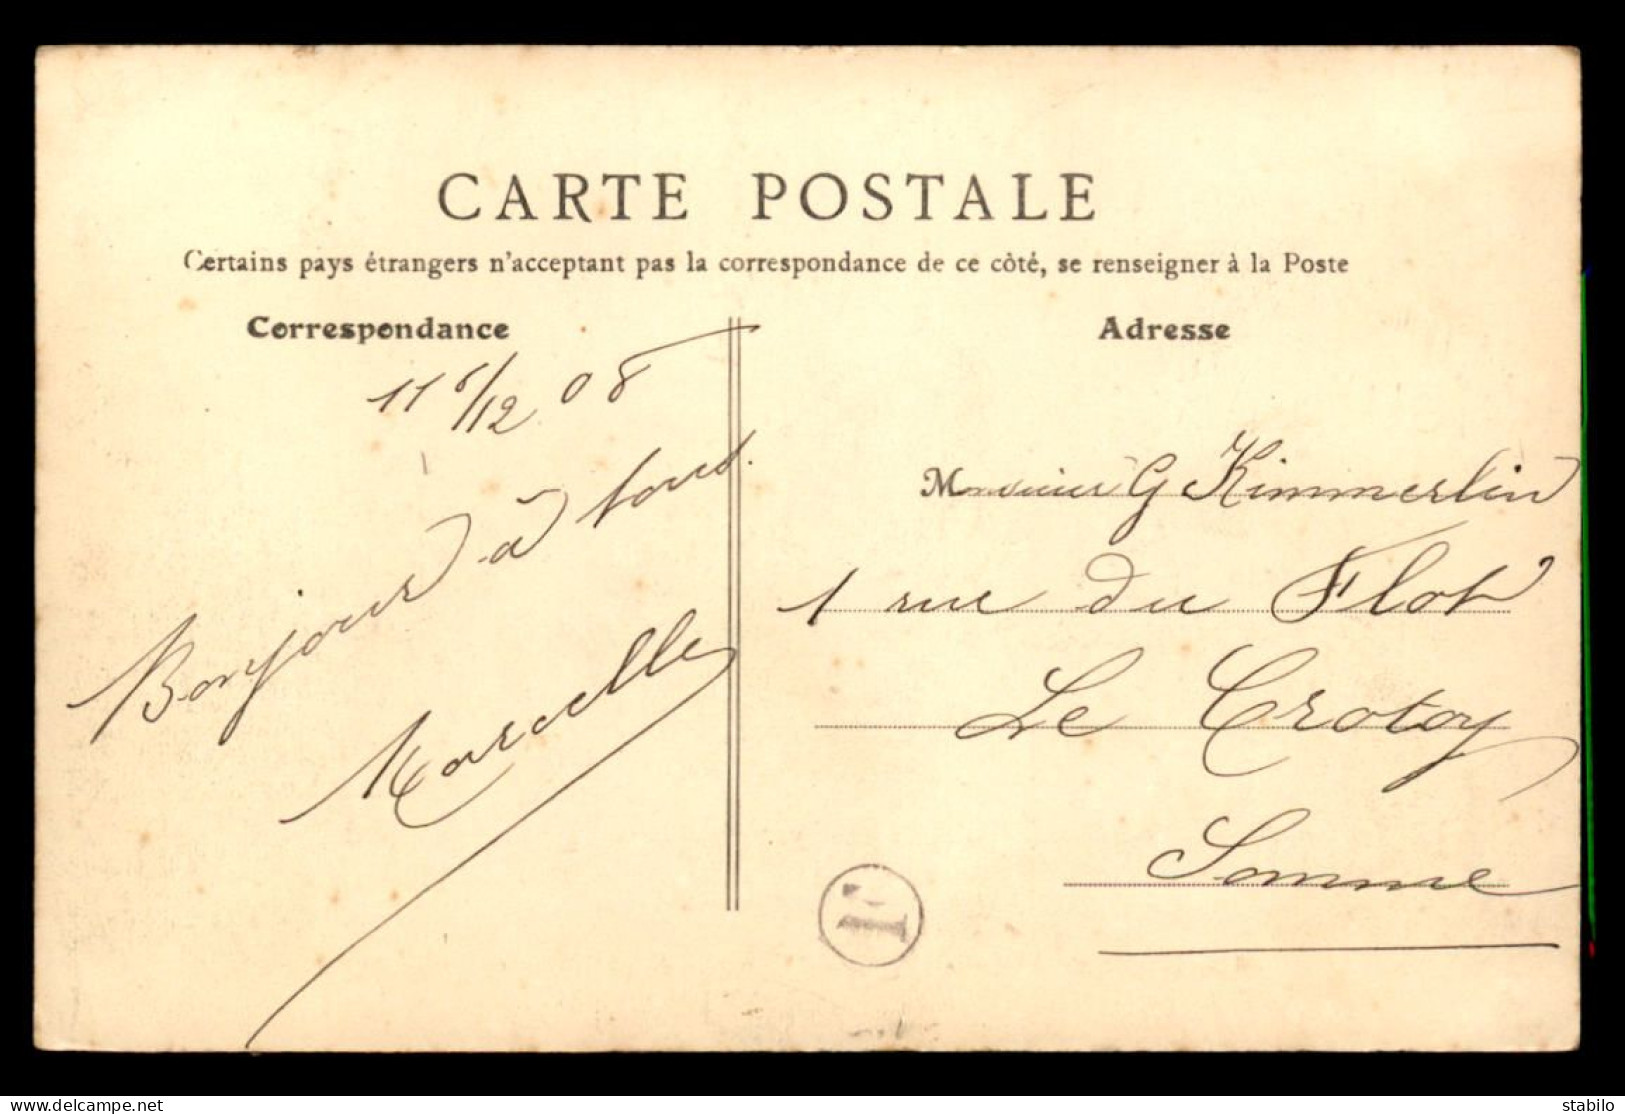 CARTE POSTALE
Certains pays étrangers n'acceptant pas la correspondance de ce côté, se renseigner à la Poste
Correspondance
Adresse
12 08
Bonjour à tous.
Marcelle
Monsieur G Kimmerlin
1 rue du Flot
Le Crotoy
Somme
stabilo